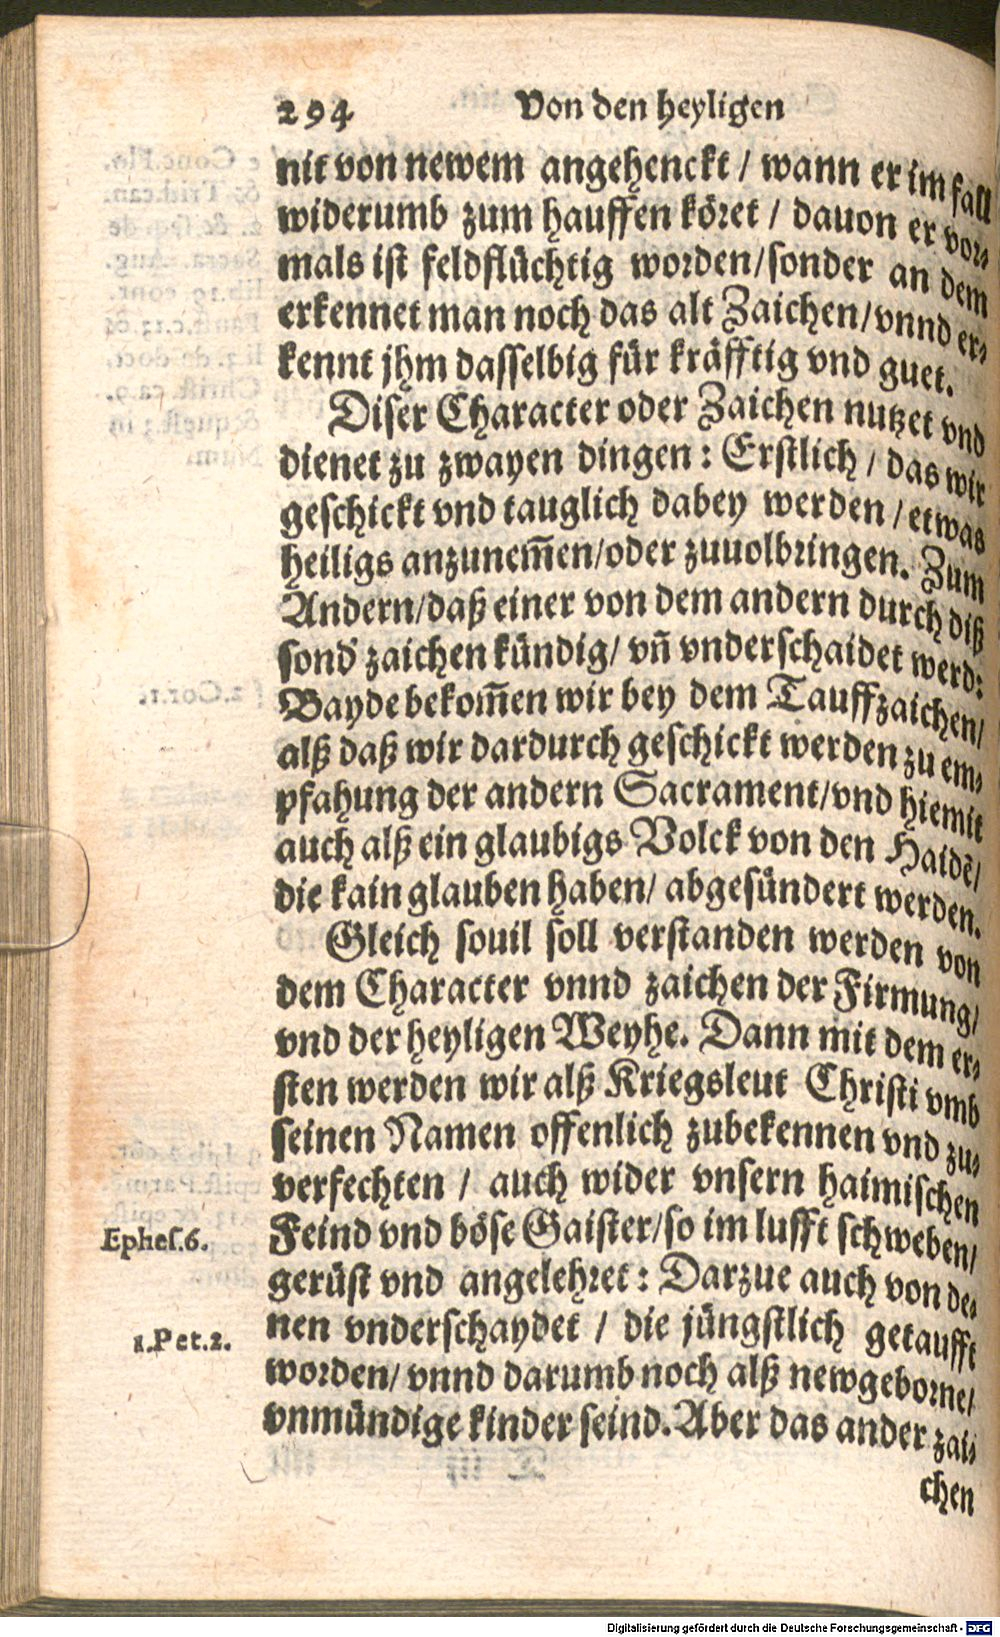 294 Von den heyligen
nit von newem angehenckt / wann er im fall
widerumb zum hauffen köret / dauon er vor-
mals ist feldflüchtig worden/sonder an dem
erkennet man noch das alt Zaichen/vnnd er-
kennt jhm dasselbig für kräfftig vnd guet.
Diser Character oder Zaichen nutzet vnd
dienet zu zwayen dingen: Erstlich / das wir
geschickt vnd tauglich dabey werden / etwas
heiligs anzunem̃en/oder zuuolbringen. Zum
Andern/daß einer von dem andern durch diß
sond' zaichen kündig/ vñ vnderschaidet werd:
Bayde bekom̃en wir bey dem Tauffzaichen/
alß daß wir dardurch geschickt werden zu em-
pfahung der andern Sacrament/vnd hiemit
auch alß ein glaubigs Volck von den Haidẽ/
die kain glauben haben/ abgesündert werden.
Gleich souil soll verstanden werden von
dem Character vnnd zaichen der Firmung/
vnd der heyligen Weyhe. Dann mit dem er-
sten werden wir alß Kriegsleut Christi vmb
seinen Namen offenlich zubekennen vnd zu-
verfechten / auch wider vnsern haimischen
Ephes.6. Feind vnd böse Gaister/so im lufft schweben/
gerüst vnd angelehret: Darzue auch von de-
1.Pet.2. nen vnderschaydet / die jüngstlich getaufft
worden/ vnnd darumb noch alß newgeborne/
vnmündige kinder seind. Aber das ander zai-
chen
Digitalisierung gefördert durch die Deutsche Forschungsgemeinschaft - DFG